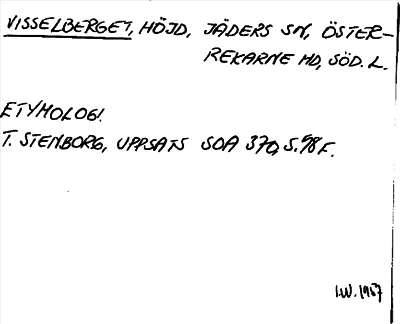 VISSELBERGET, HÖJD, JÄDERS SN, ÖSTER-
REKARNE HD, SÖD. L.
ETYMOLOGI.
T. STENBORG, UPPSATS SOA 370, S. 98 F.
I.W. 1987